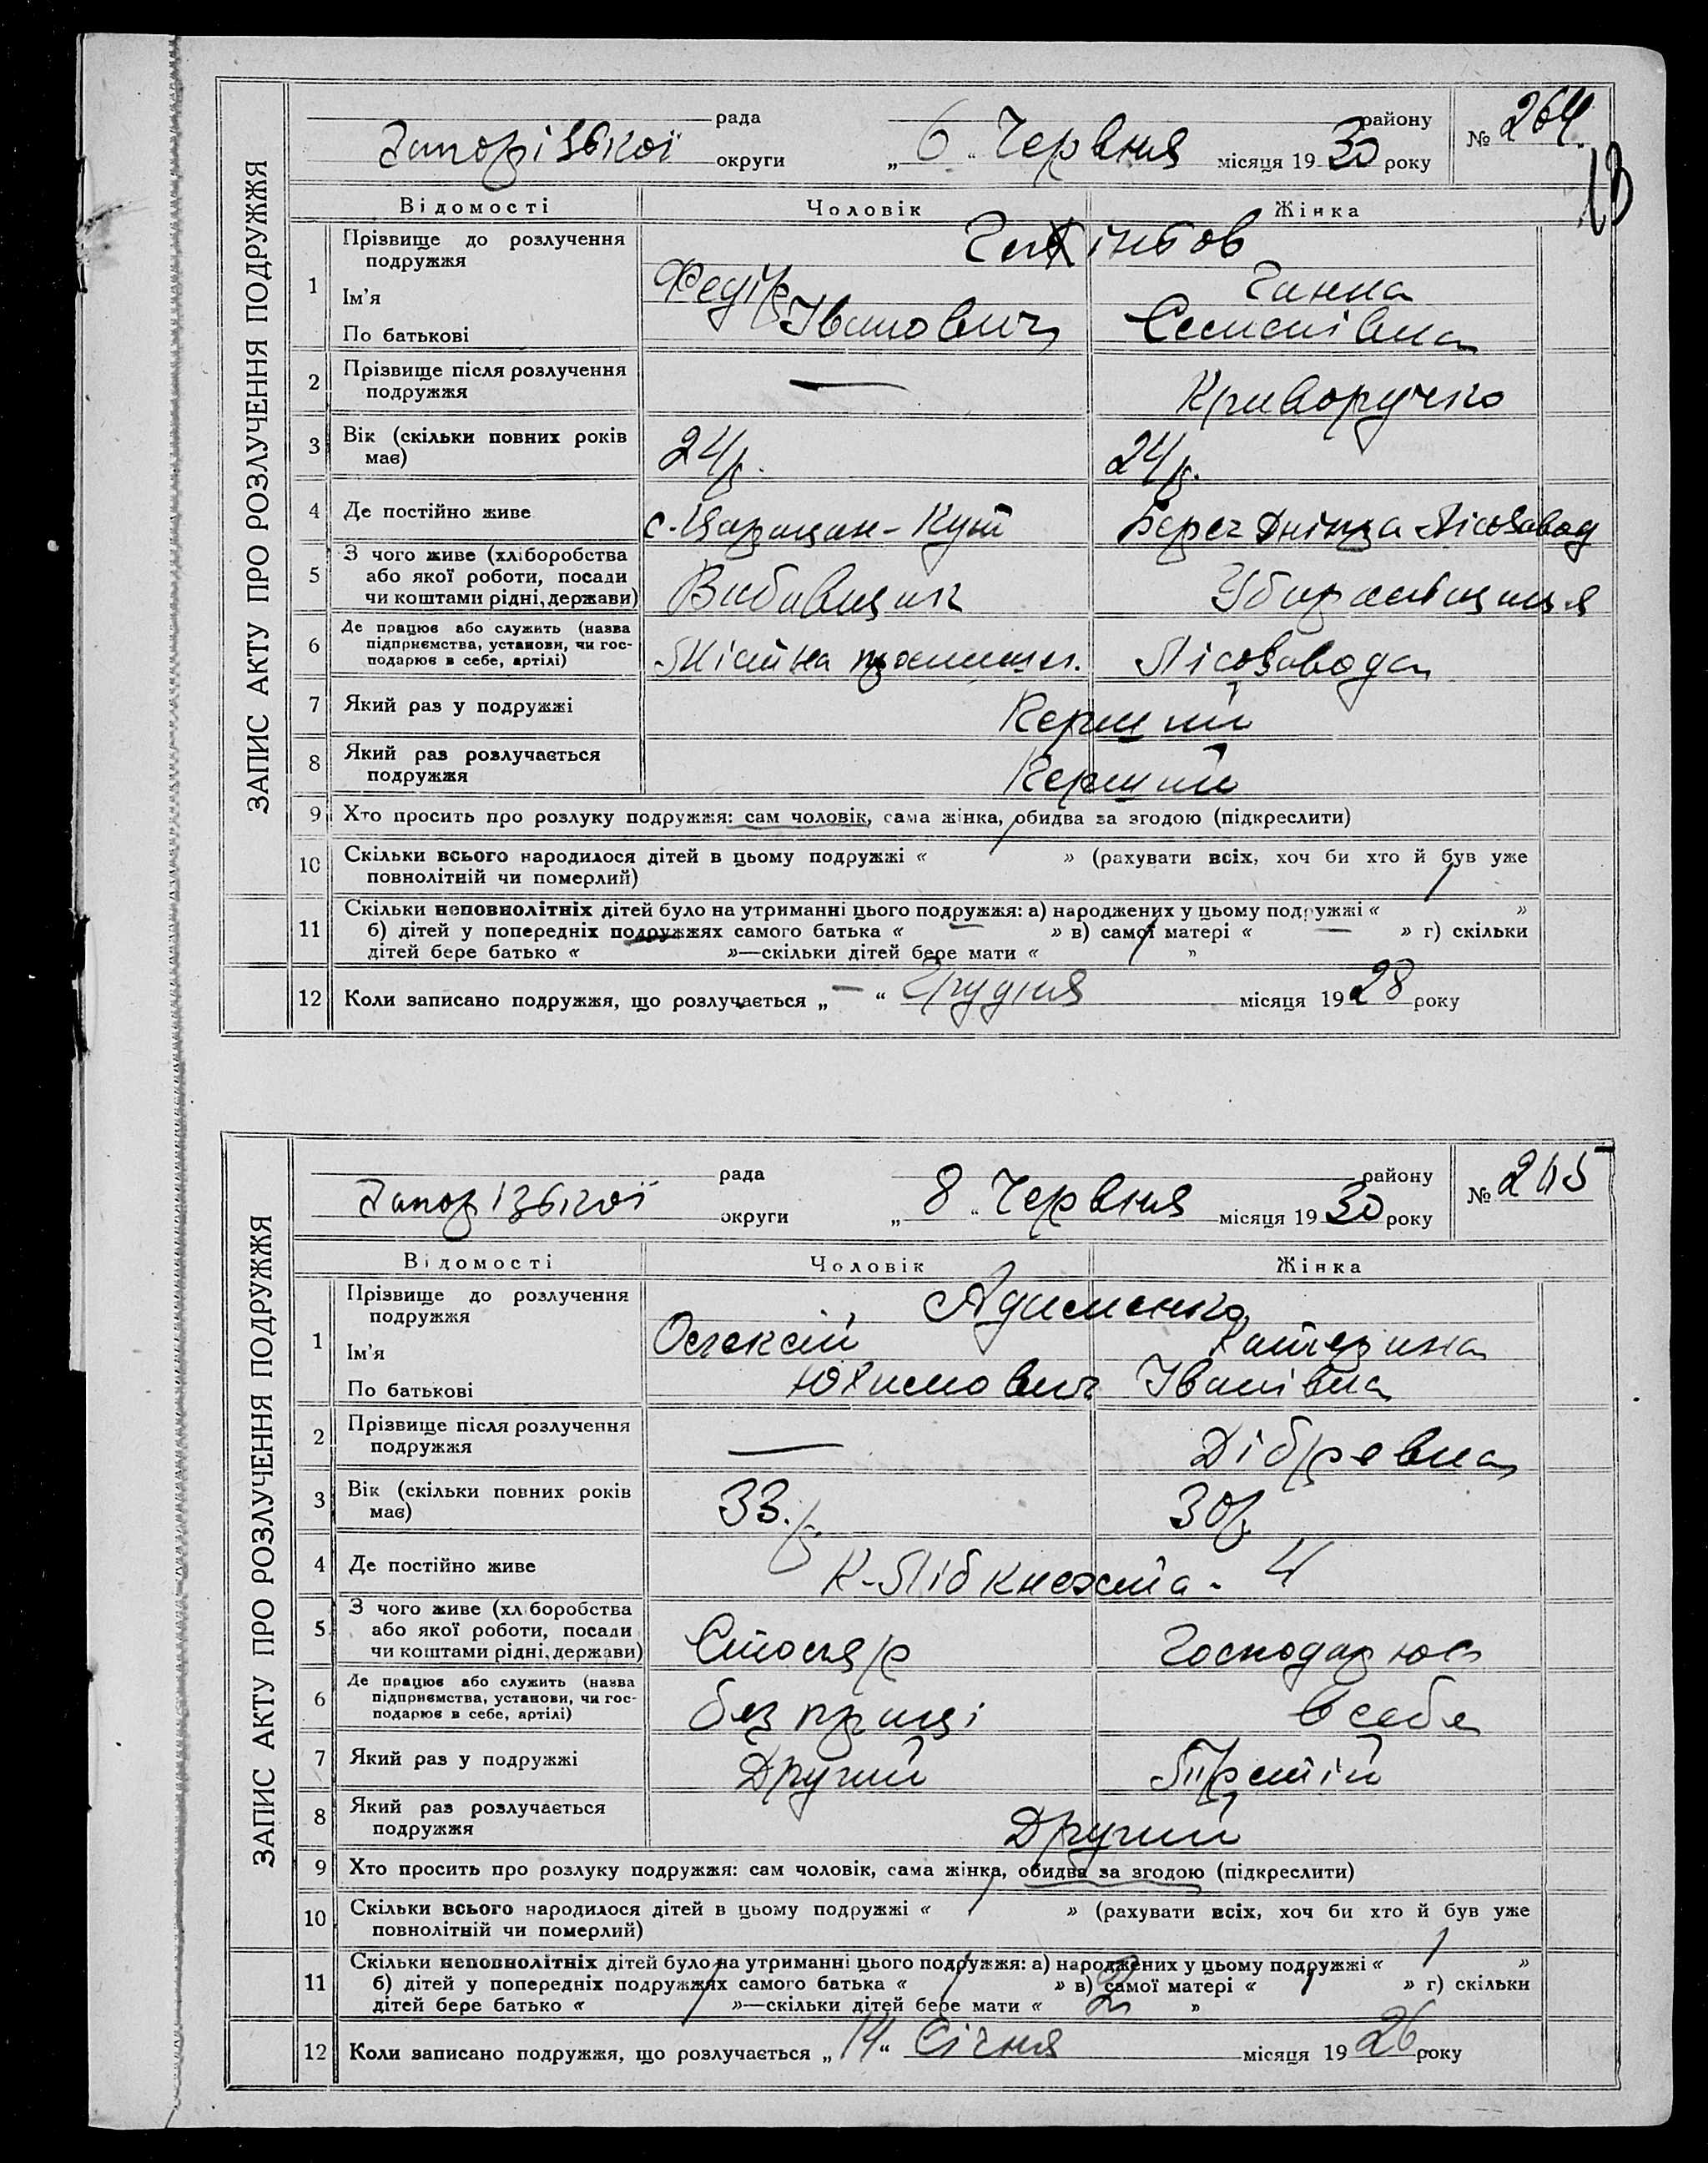 ЗАПИС АКТУ ПРО РОЗЛУЧЕННЯ ПОДРУЖЖЯ
рада району № 264.
Запорізької округи „ 6 “ Червня місяця 1930 року
13
Відомості Чоловік Жінка
1 Прізвище до розлучення подружжя
Ім’я Федір Ганна
По батькові Іванович Семенівна
2 Прізвище після розлучення подружжя — Криворучко
3 Вік (скільки повних років має) 24 р. 24 р.
4 Де постійно живе с. Царицин-Кут Берег Дніпра Лісозавод
5 З чого живе (хліборобства або якої роботи, посади чи коштами рідні, держави) Вибивщик Убиральниця
6 Де працює або служить (назва підприємства, установи, чи господарює в себе, артілі) Лісозавода
7 Який раз у подружжі Перший
8 Який раз розлучається подружжя Перший
9 Хто просить про розлуку подружжя: сам чоловік, сама жінка, обидва за згодою (підкреслити)
10 Скільки всього народилося дітей в цьому подружжі « » (рахувати всіх, хоч би хто й був уже
повнолітній чи померлий)
11 Скільки неповнолітніх дітей було на утриманні цього подружжя: а) народжених у цьому подружжі « »
б) дітей у попередніх подружжях самого батька « — » в) самої матері « — » г) скільки
дітей бере батько « — »—скільки дітей бере мати « »
12 Коли записано подружжя, що розлучається „ — “ Грудня місяця 1928 року
ЗАПИС АКТУ ПРО РОЗЛУЧЕННЯ ПОДРУЖЖЯ
рада району № 265
Запорізької округи „ 8 “ Червня місяця 1930 року
Відомості Чоловік Жінка
1 Прізвище до розлучення подружжя Адименко
Ім’я Олексій Катерина
По батькові Юхимович Іванівна
2 Прізвище після розлучення подружжя — Дібревна
3 Вік (скільки повних років має) 33 р. 30 р.
4 Де постійно живе К-Лібкнехта - 4
5 З чого живе (хліборобства або якої роботи, посади чи коштами рідні, держави) Столяр Господарює
6 Де працює або служить (назва підприємства, установи, чи господарює в себе, артілі) без праці в себе
7 Який раз у подружжі Другий Третій
8 Який раз розлучається подружжя Другий
9 Хто просить про розлуку подружжя: сам чоловік, сама жінка, обидва за згодою (підкреслити)
10 Скільки всього народилося дітей в цьому подружжі « » (рахувати всіх, хоч би хто й був уже
повнолітній чи померлий)
11 Скільки неповнолітніх дітей було на утриманні цього подружжя: а) народжених у цьому подружжі « »
б) дітей у попередніх подружжях самого батька « » в) самої матері « » г) скільки
дітей бере батько « »—скільки дітей бере мати « 2 »
12 Коли записано подружжя, що розлучається „ 14 “ Січня місяця 1926 року